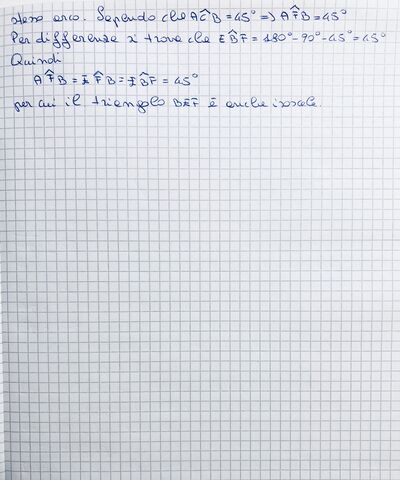 stesso arco. Sapendo che AĈB = 45° => AF̂B = 45°
Per differenza si trova che EB̂F = 180° - 90° - 45° = 45°
Quindi
AF̂B = EF̂B = EB̂F = 45°
per cui il triangolo BEF è anche isoscele.